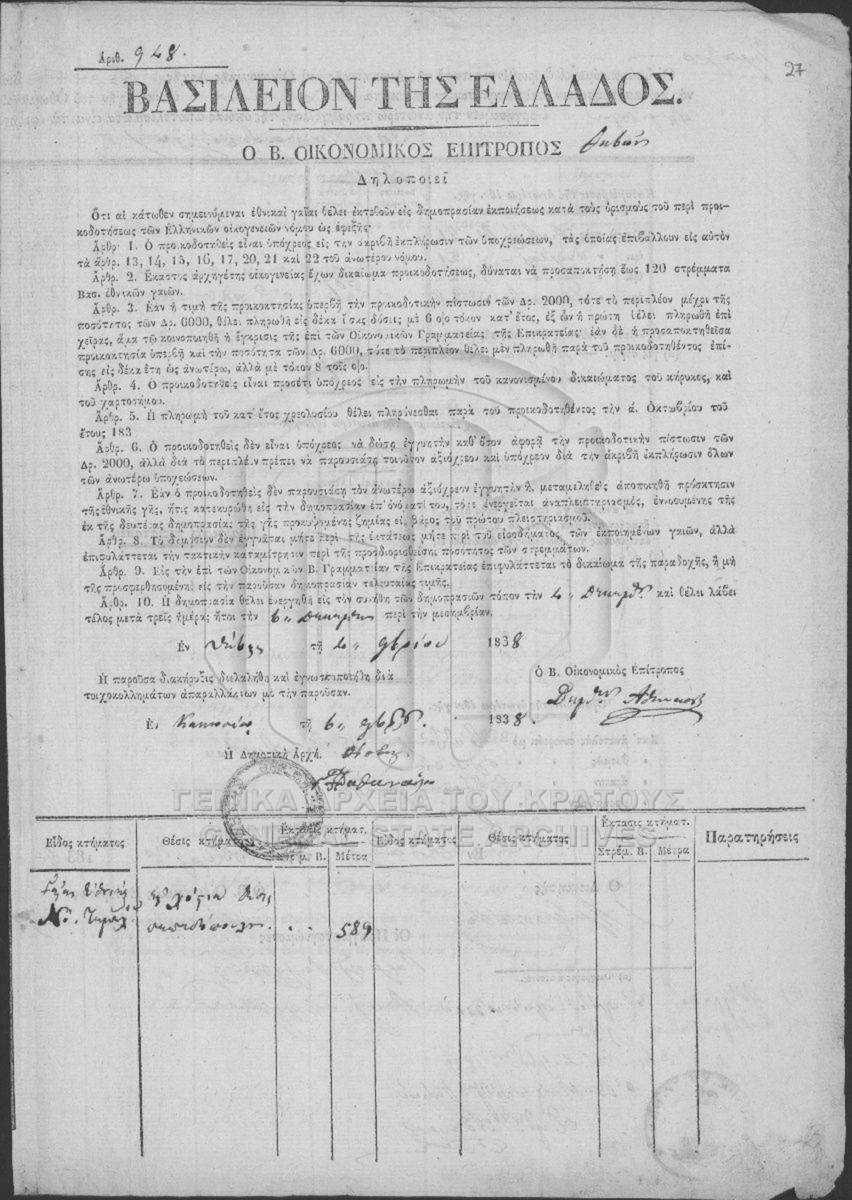 Ἀριθ. 948.
27
ΒΑΣΙΛΕΙΟΝ ΤΗΣ ΕΛΛΑΔΟΣ.
Ο Β. ΟΙΚΟΝΟΜΙΚΟΣ ΕΠΙΤΡΟΠΟΣ Θηβῶν
Δηλοποιεῖ
Ὅτι αἱ κάτωθεν σημειούμεναι ἐθνικαὶ γαῖαι θέλει ἐκτεθοῦν εἰς δημοπρασίαν ἐκποιήσεως κατὰ τοὺς ὁρισμοὺς τοῦ περὶ προι-
κοδοτήσεως τῶν Ἑλληνικῶν οἰκογενειῶν νόμου ὡς ἐφεξῆς·
Ἄρθρ· 1. Ὁ προικοδοτηθεὶς εἶναι ὑπόχρεος εἰς τὴν ἀκριβῆ ἐκπλήρωσιν τῶν ὑποχρεώσεων, τὰς ὁποίας ἐπιβάλλουν εἰς αὐτὸν
τὰ ἄρθρ. 13, 14, 15, 16, 17, 20, 21 καὶ 22 τοῦ ἀνωτέρω νόμου.
Ἄρθρ. 2. Ἕκαστος ἀρχηγέτης οἰκογενείας ἔχων δικαίωμα προικοδοτήσεως, δύναται νὰ προσαποκτήσῃ ἕως 120 στρέμματα
Βασ. ἐθνικῶν γαιῶν.
Ἄρθρ. 3. Ἐὰν ἡ τιμὴ τῆς προικοκτησίας ὑπερβῇ τὴν προικοδοτικὴν πίστωσιν τῶν Δρ. 2000, τότε τὸ περιπλέον μέχρι τῆς
ποσότητος τῶν Δρ. 6000, θέλει πληρωθῆ εἰς δέκα ἴσας δόσεις μὲ 6 ο)ο τόκον κατ' ἔτος, ἐξ ὧν ἡ πρώτη θέλει πληρωθῆ ἐπὶ
χεῖρας, ἅμα τῷ κοινοποιηθῇ ἡ ἔγκρισις τῆς ἐπὶ τῶν Οἰκονομικῶν Γραμματείας τῆς Ἐπικρατείας· ἐὰν δὲ ἡ προσαποκτηθεῖσα
προικοκτησία ὑπερβῇ καὶ τὴν ποσότητα τῶν Δρ. 6000, τότε τὸ περιπλέον θέλει μὲν πληρωθῆ παρὰ τοῦ προικοδοτηθέντος ἐπί-
σης εἰς δέκα ἔτη ὡς ἀνωτέρω, ἀλλὰ μὲ τόκον 8 τοῖς ο)ο.
Ἄρθρ. 4. Ὁ προικοδοτηθεὶς εἶναι προσέτι ὑπόχρεος εἰς τὴν πληρωμὴν τοῦ κανονισμένου δικαιώματος τοῦ κήρυκος, καὶ
τοῦ χαρτοσήμου.
Ἄρθρ. 5. Ἡ πληρωμὴ τοῦ κατ' ἔτος χρεολυσίου θέλει πληρόνεσθαι παρὰ τοῦ προικοδοτηθέντος τὴν ά. Ὀκτωβρίου τοῦ
ἔτους 183
Ἄρθρ. 6. Ὁ προικοδοτηθεὶς δὲν εἶναι ὑπόχρεος νὰ δώσῃ ἐγγυητὴν καθ' ὅσον ἀφορᾷ τὴν προικοδοτικὴν πίστωσιν τῶν
Δρ. 2000, ἀλλὰ διὰ τὸ περιπλέον πρέπει νὰ παρουσιάσῃ τοιοῦτον ἀξιόχρεον καὶ ὑπόχρεον διὰ τὴν ἀκριβῆ ἐκπλήρωσιν ὅλων
τῶν ἀνωτέρω ὑποχεώσεων.
Ἄρθρ. 7. Ἐὰν ὁ προικοδοτηθεὶς δὲν παρουσιάσῃ τὸν ἀνωτέρω ἀξιόχρεον ἐγγυητὴν ἢ, μεταμεληθεὶς ἀποποιηθῇ πρόσκτησιν
τῆς ἐθνικῆς γῆς, ἥτις κατεκυρώθη εἰς τὴν δημοπρασίαν ἐπ' ὀνόματί του, τότε ἐνεργεῖται ἀναπλειστηριασμὸς, ἐννοουμένης τῆς
ἐκ τῆς δευτέρας δημοπρασίας τῆς γῆς προκυψομένης ζημίας εἰς βάρος τοῦ πρώτου πλειστηριασμοῦ.
Ἄρθρ. 8. Τὸ δημόσιον δὲν ἐγγυᾶται μήτε περὶ τῆς ἐκτάσεως μήτε περὶ τοῦ εἰσοδήματος τῶν ἐκποιημένων γαιῶν, ἀλλὰ
ἐπιφυλάττεται τὴν τακτικὴν καταμέτρησιν περὶ τῆς προσδιορισθείσης ποσότητος τῶν στρεμμάτων.
Ἄρθρ. 9. Εἰς τὴν ἐπὶ τῶν Οἰκονομικῶν Β. Γραμματείαν τῆς Ἐπικρατείας ἐπιφυλάττεται τὸ δικαίωμα τῆς παραδοχῆς, ἢ μὴ
τῆς προσφερθησομένης εἰς τὴν παροῦσαν δημοπρασίαν τελευταίας τιμῆς.
Ἄρθρ. 10. Ἡ δημοπρασία θέλει ἐνεργηθῆ εἰς τὸν συνήθη τῶν δημοπρασιῶν τόπον τὴν καὶ θέλει λάβει
τέλος μετὰ τρεῖς ἡμέρας ἤτοι τὴν περὶ τὴν μεσημβρίαν.
Ἐν τῇ 1838
Ἡ παροῦσα διακήρυξις διελαλήθη καὶ ἐγνωστοποιήθη διὰ
τοιχοκολλημάτων ἀπαραλλάκτων μὲ τὴν παροῦσαν.
Ὁ Β. Οἰκονομικὸς Ἐπίτροπος
Ἐν τῇ 1838.
Ἡ Δημοτικὴ Ἀρχὴ.
ΓΕΝΙΚΑ ΑΡΧΕΙΑ ΤΟΥ ΚΡΑΤΟΥΣ
GENERAL STATE ARCHIVES
Εἶδος κτήματος Θέσις κτήματος Ἔκτασις κτήματ. Εἶδος κτήματος Θέσις κτήματος Ἔκτασις κτήματ. Παρατηρήσεις
Στρέμ. Β. Μέτρα Στρέμ. Β. Μέτρα
589